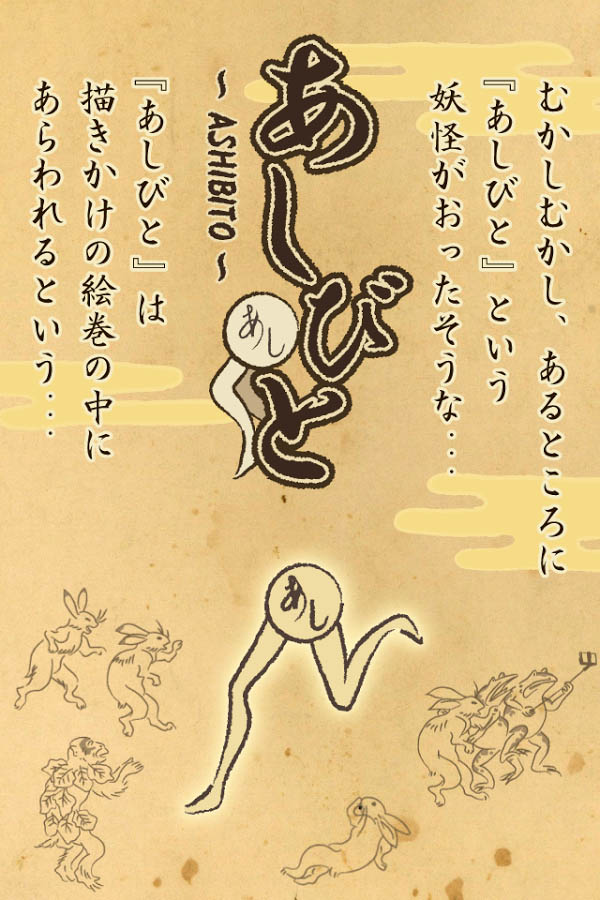 むかしむかし、あるところに
『あしびと』という
妖怪がおったそうな…
あしびと
～ ASHIBITO ～
あし
『あしびと』は
描きかけの絵巻の中に
あらわれるという…
あし